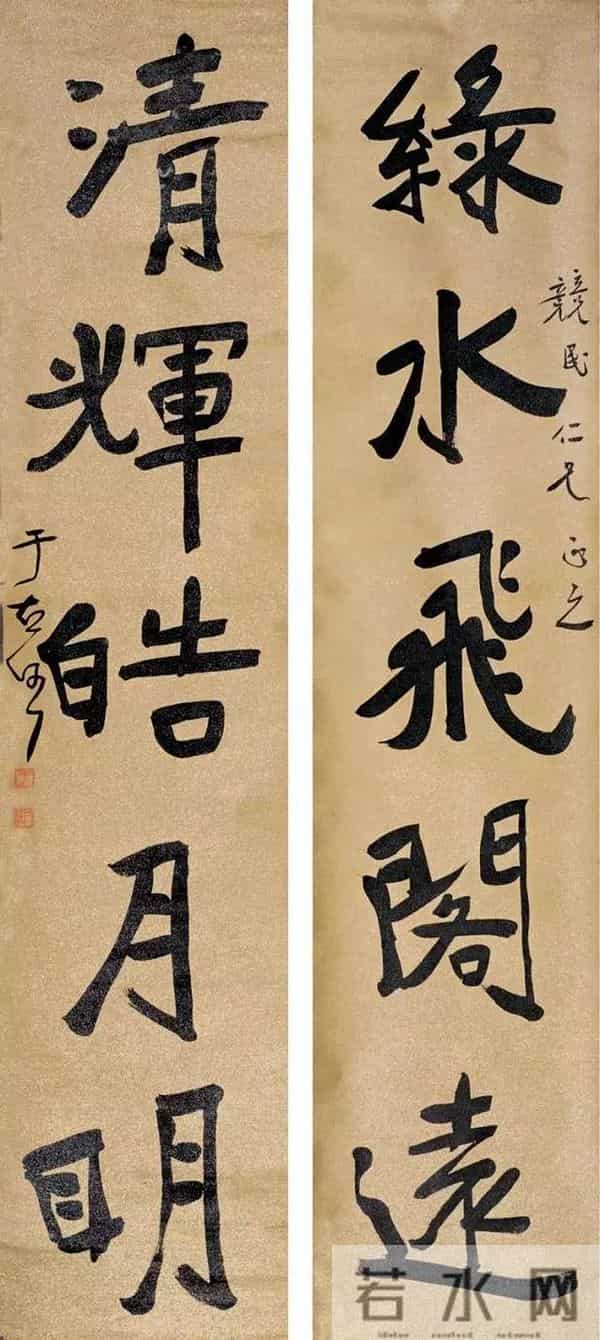 競民仁兄正之
綠水飛閣遠
清輝皓月明
于右任
若水网